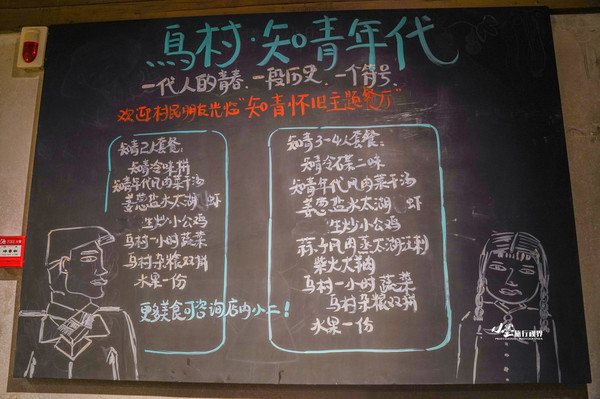 马村·知青年代
一代人的青春.一段历史.一个符号.
欢迎村民朋友光临"知青怀旧主题餐厅"
知青2人套餐:
知青冷味拼
知青年代风肉菜干汤
姜葱盐水太湖虾
生炒小公鸡
马村一小时蔬菜
马村杂粮双拼
水果一份
更多美食可咨询店内小二!
知青3-4人套餐:
知青冷菜二味
知青年代风肉菜干汤
姜葱盐水太湖虾
生炒小公鸡
风肉蒸太湖白刺
柴火大
马村一小时蔬菜
马村杂粮双拼
水果一份
旅行视界